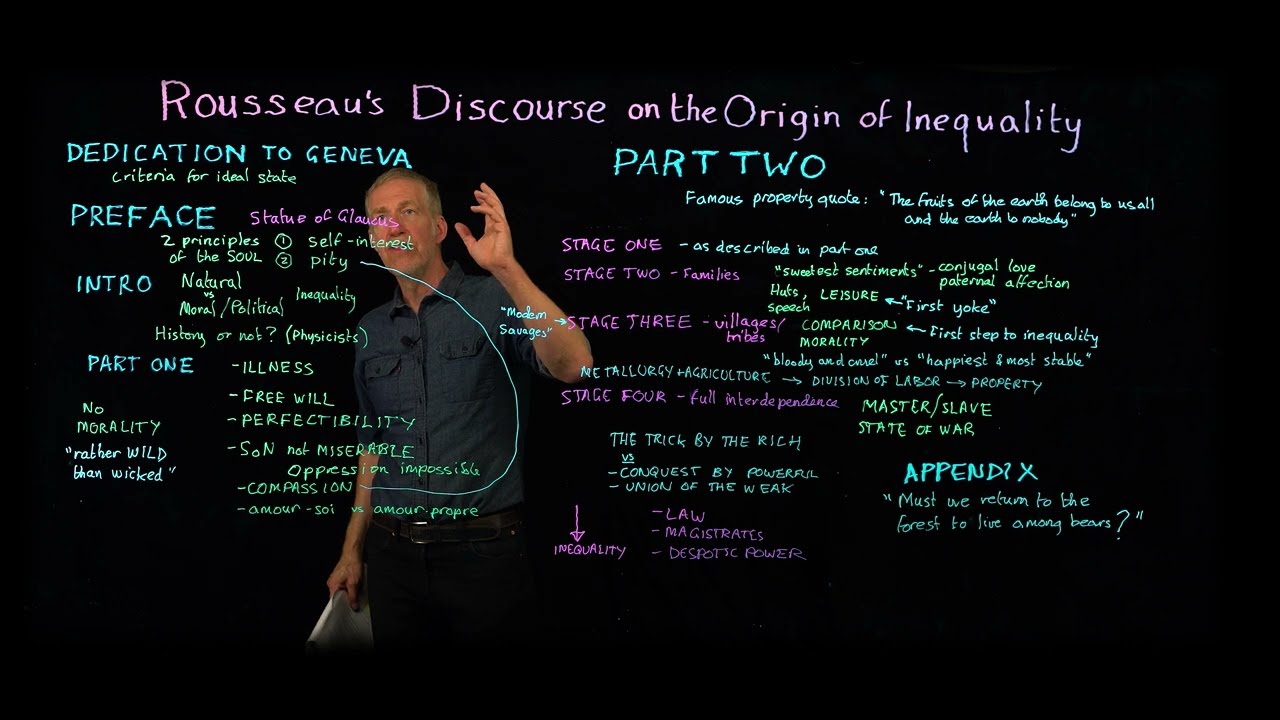 Rousseau's Discourse on the Origin of Inequality
DEDICATION TO GENEVA
criteria for ideal state
PREFACE
Statue of Glaucus
2 principles of the SOUL
① self-interest
② pity
INTRO
Natural
vs
Moral/Political
Inequality
History or not? (Physicists)
PART ONE
- ILLNESS
- FREE WILL
- PERFECTIBILITY
- SoN not MISERABLE
Oppression impossible
- COMPASSION
- amour-soi vs amour propre
NO
MORALITY
"rather WILD
than wicked"
PART TWO
Famous property quote: "The fruits of the earth belong to us all
and the earth to nobody"
STAGE ONE - as described in part one
STAGE TWO - Families
"sweetest sentiments" - conjugal love
paternal affection
Huts,
speech
LEISURE ← "First yoke"
"Modern
Savages" →
STAGE THREE - villages/
tribes
COMPARISON ← First step to inequality
MORALITY
"bloody and cruel" vs "happiest & most stable"
METALLURGY + AGRICULTURE → DIVISION OF LABOR → PROPERTY
STAGE FOUR - full interdependence
MASTER/SLAVE
STATE OF WAR
THE TRICK BY THE RICH
vs
- CONQUEST BY POWERFUL
- UNION OF THE WEAK
↓
INEQUALITY
- LAW
- MAGISTRATES
- DESPOTIC POWER
APPENDIX
"Must we return to the
forest to live among bears?"